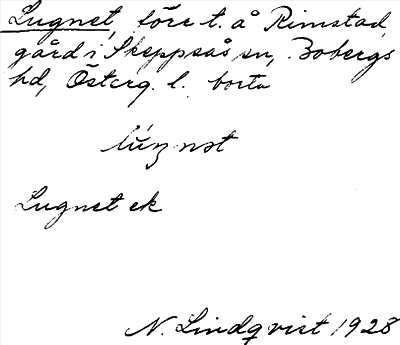 Lugnet, före t. å Rimstad,
gård i Skeppsås sn, Bobergs
hd, Österg. l. borta
Lugnet ek
N. Lindqvist 1928